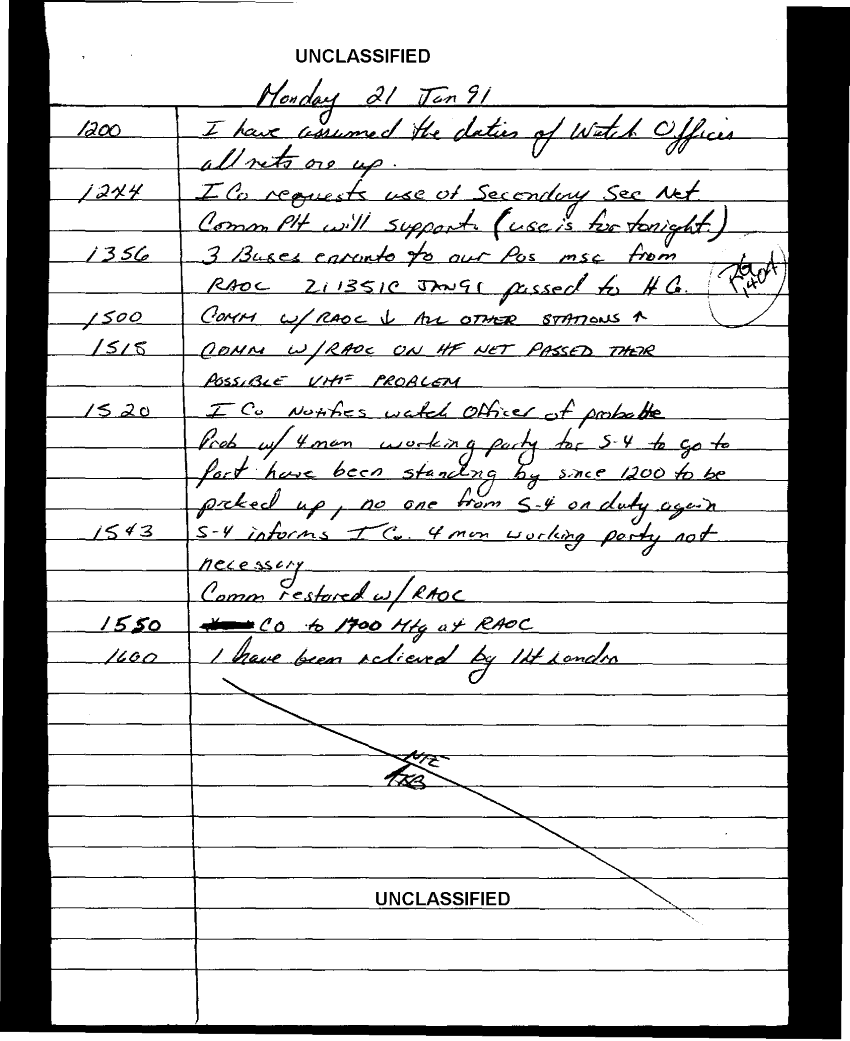 UNCLASSIFIED
Monday 21 Jan 91
1200 I have assumed the duties of Watch Officer
all nets are up.
1244 I Co requests use of Secondary Sec Net
Comm Plt will support. (use is for tonight.)
1356 3 Buses enroute to our Pos msg from
RAOC 211351C JAN91 passed to H Co.
1404
1500 COMM W/RAOC ↓ ALL OTHER STATIONS ↑
1518 COMM W/RAOC ON HF NET PASSED THEIR
POSSIBLE VHF PROBLEM
1520 I Co Notifies watch Officer of probable
Prob w/ 4 man working party for S-4 to go to
Port have been standing by since 1200 to be
picked up, no one from S-4 on duty again
1543 S-4 informs I Co. 4 man working party not
necessary
Comm restored w/ RAOC
1550 CO to 1700 Mtg at RAOC
1600 I have been relieved by Lt London
UNCLASSIFIED